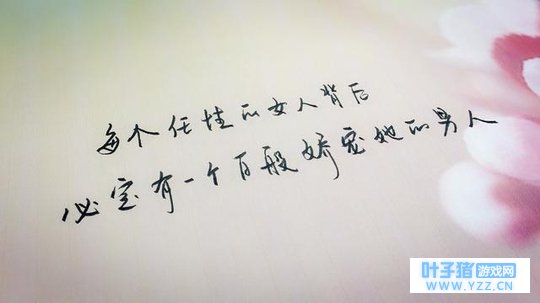 每个任性的女人背后
必定有一个百般娇宠她的男人
叶子猪游戏网
www.YZZ.CN